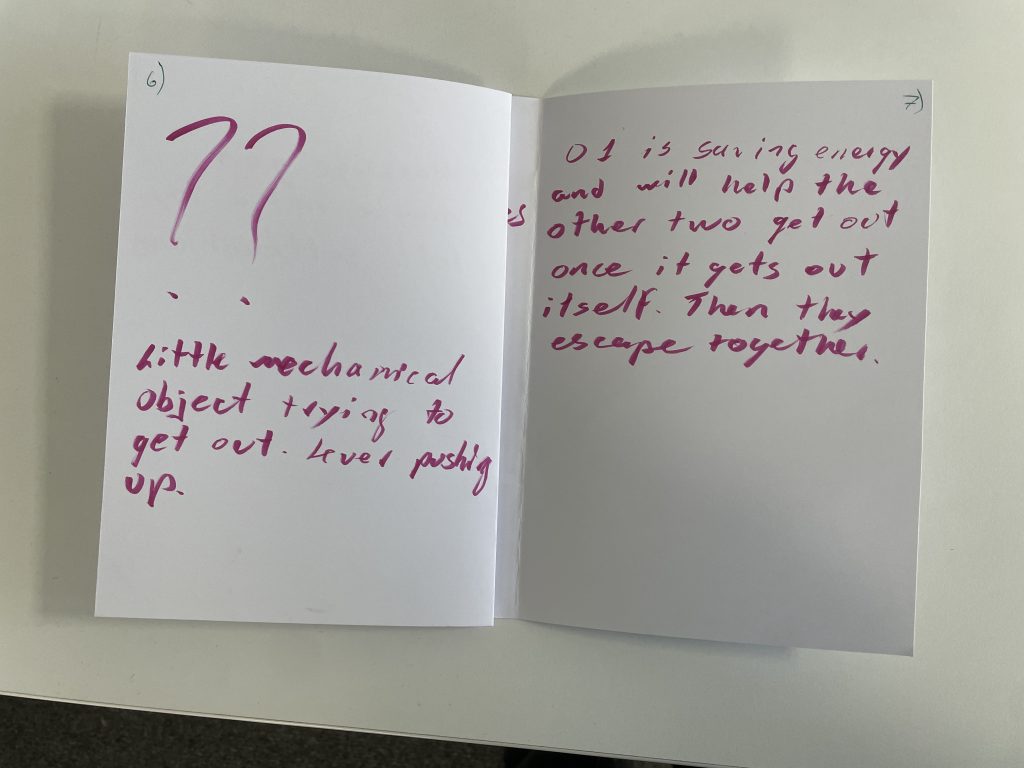 6)
??
Little mechanical
object trying to
get out. Lever pushing
up.
es
7)
01 is saving energy
and will help the
other two get out
once it gets out
itself. Then they
escape together.